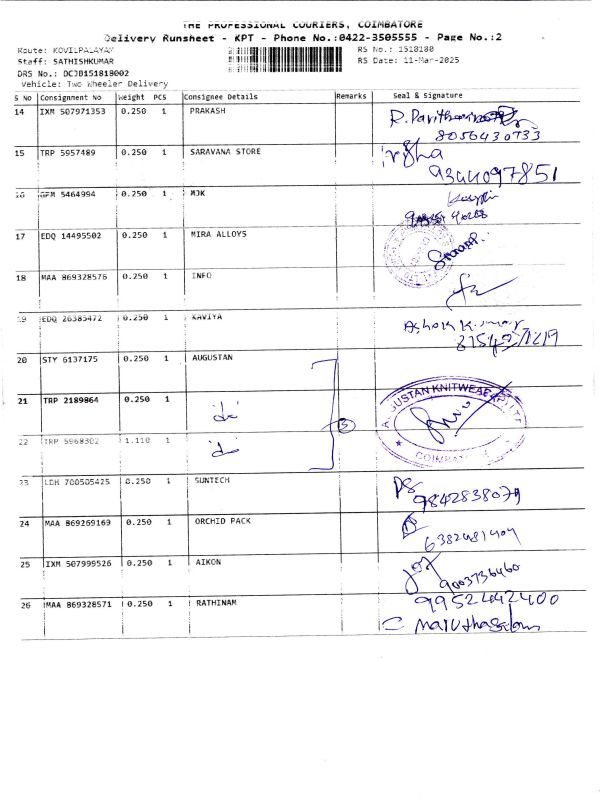 THE PROFESSIONAL COURIERS, COIMBATORE
Delivery Runsheet - KPT - Phone No.:0422-3505555 - Page No.:2
Route: KOVILPALAYAM
RS No.: 1518180
Staff: SATHISHKUMAR
RS Date: 11-Mar-2025
DRS No.: DCJB151818002
Vehicle: Two Wheeler Delivery
S No Consignment No Weight PCS Consignee Details Remarks Seal & Signature
14 IXM 507971353 0.250 1 PRAKASH
8056430733
15 TRP 5957489 0.250 1 SARAVANA STORE
9344097851
16 GFM 5464994 0.250 1 MJK
17 EDQ 14495502 0.250 1 MIRA ALLOYS
18 MAA 869328576 0.250 1 INFO
19 EDQ 26385472 0.250 1 KAVIYA Ashok Kumar
20 STY 6137175 0.250 1 AUGUSTAN
21 TRP 2189864 0.250 1
AUGUSTAN KNITWEAR
22 TRP 5968302 1.110 1
3
23 LDH 700505425 0.250 1 SUNTECH
9842838079
24 MAA 869269169 0.250 1 ORCHID PACK
6382481404
25 IXM 507999526 0.250 1 AIKON
9003736460
26 MAA 869328571 0.250 1 RATHINAM
9952442400